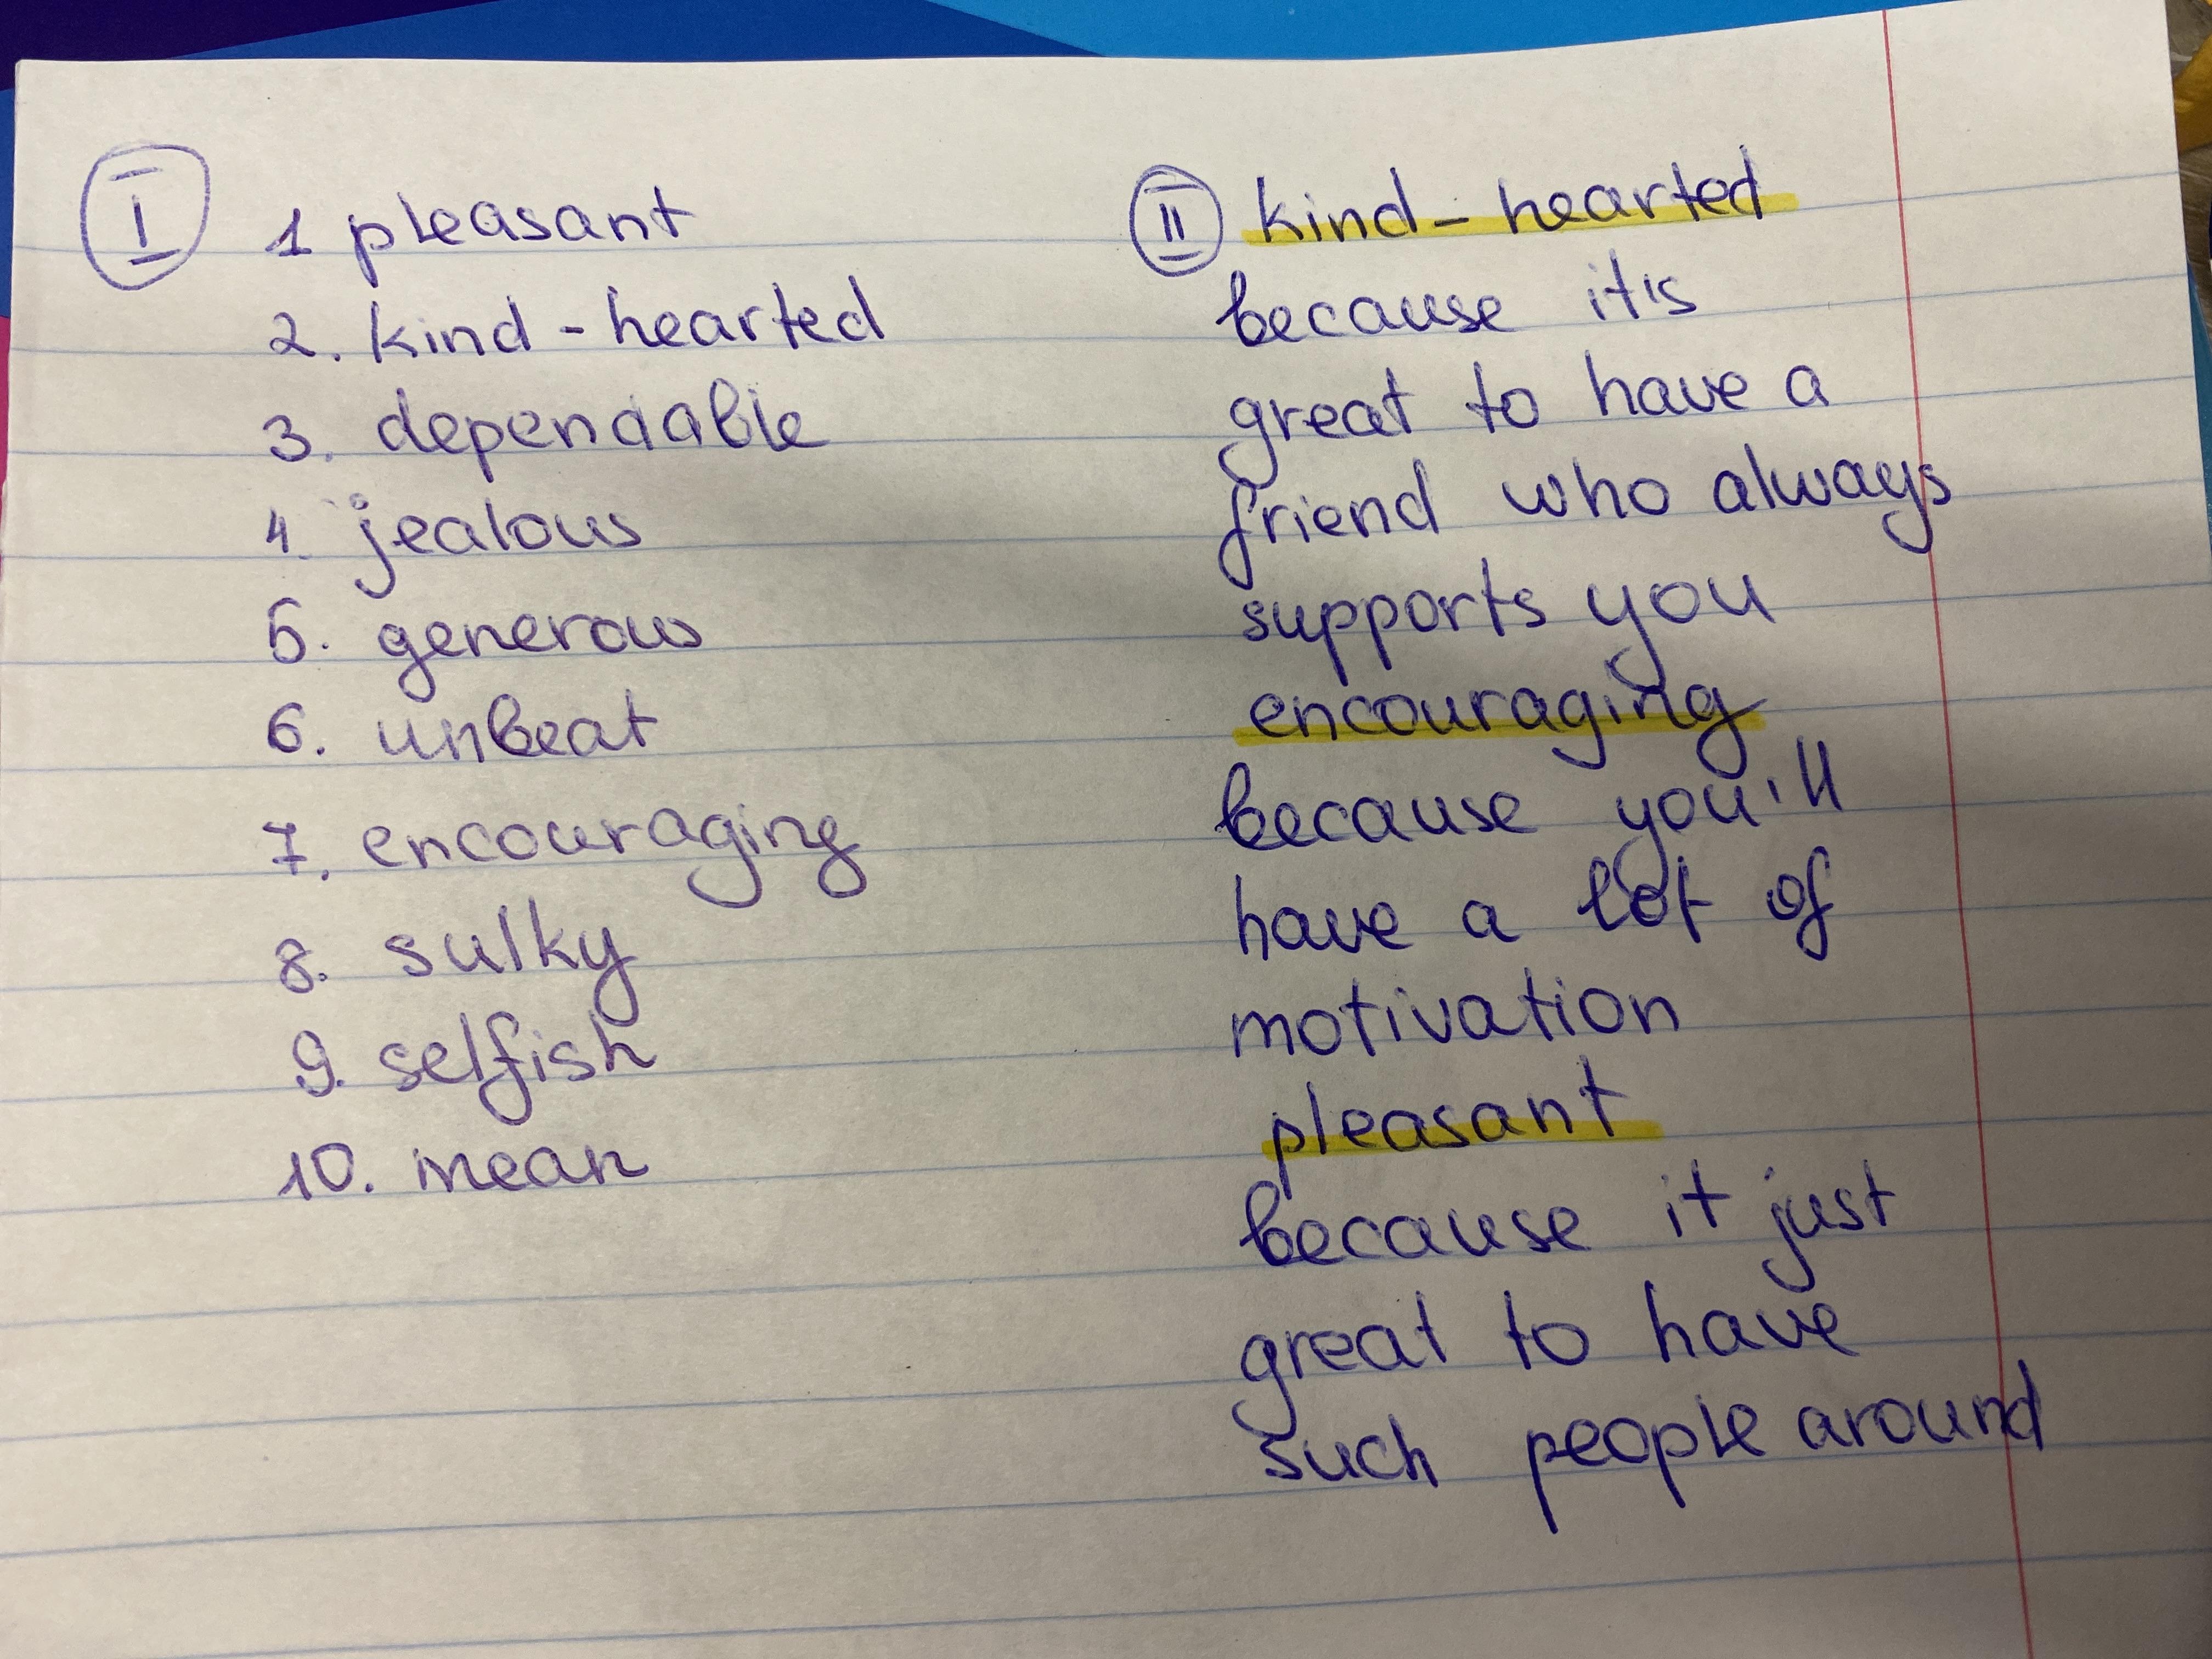 I
1 pleasant
2. kind-hearted
3. dependable
4. jealous
5. generous
6. unbeat
7. encouraging
8. sulky
9. selfish
10. mean
II kind-hearted
because it's
great to have a
friend who always
supports you
encouraging
because you'll
have a lot of
motivation
pleasant
because it just
great to have
such people around